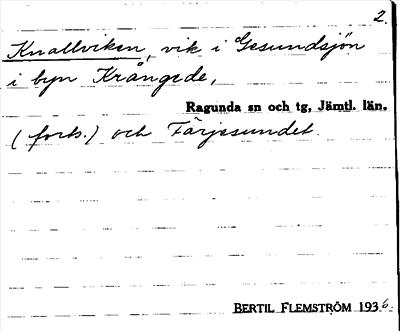 2.
Knallviken, vik i Gesundsjön
i byn Krångede,
Ragunda sn och tg, Jämtl. län.
(forts.) och Färjesundet.
BERTIL FLEMSTRÖM 1936.